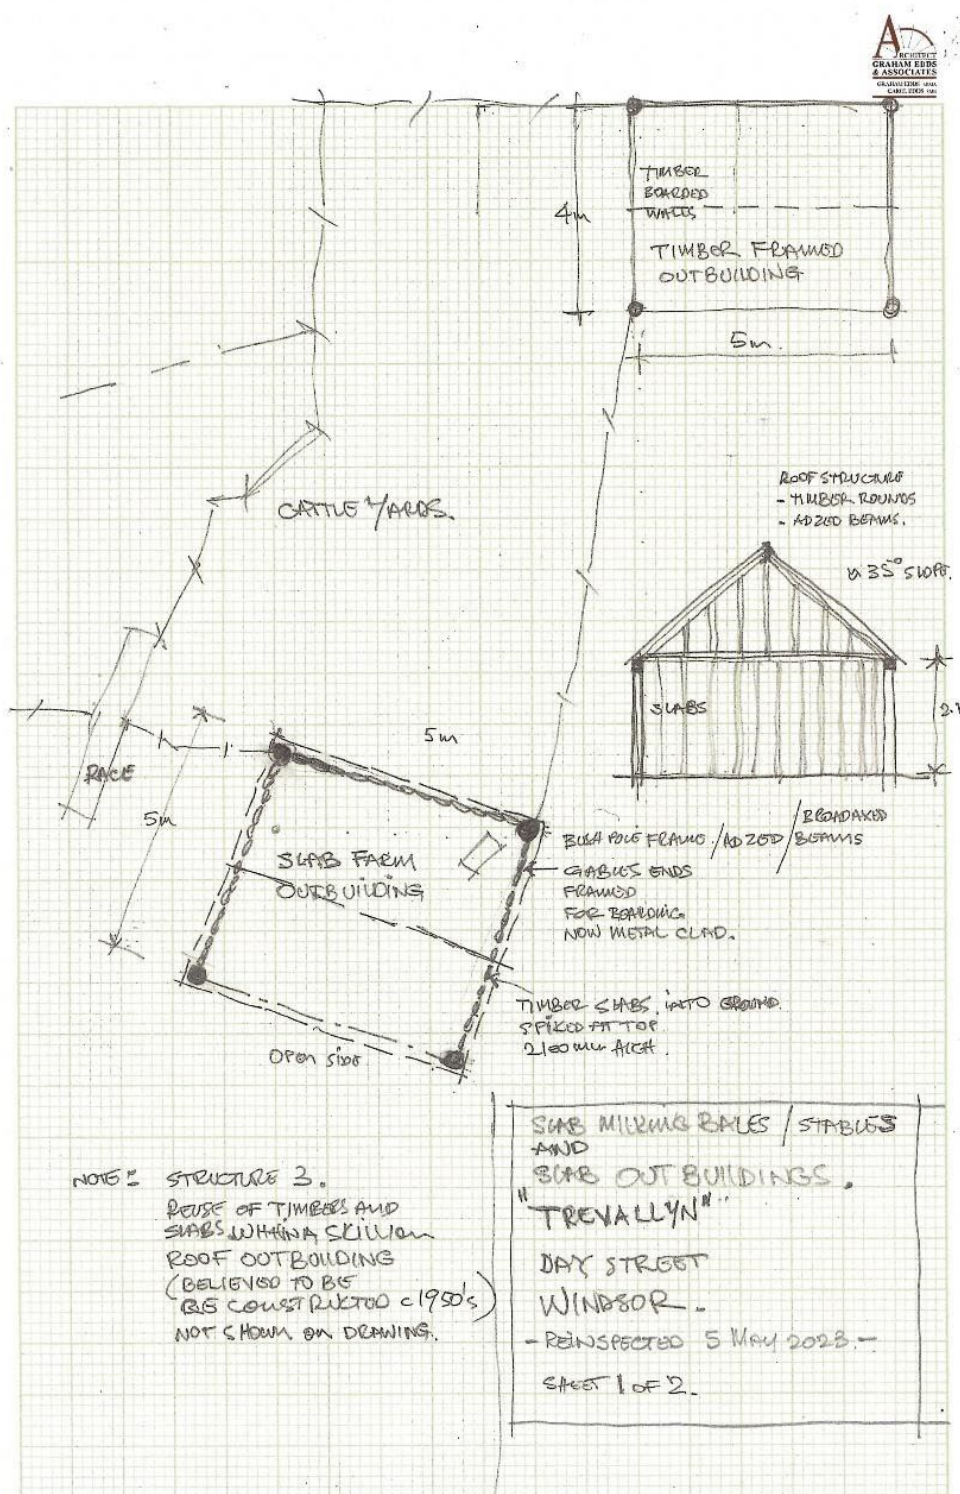 ARCHITECT
GRAHAM EDDS
& ASSOCIATES
GRAHAM EDDS
CAROL EDDS
4m
TIMBER
BOARDED
WALLS
TIMBER FRAMED
OUTBUILDING
5m.
CATTLE YARDS.
ROOF STRUCTURE
- TIMBER ROUNDS
- ADZED BEAMS.
35° SLOPE.
SLABS
2.
RACE
5m
5m
SLAB FARM
OUTBUILDING
OPEN SIDE
BUSH POLE FRAME / ADZED / BROADAXED
BEAMS
GABLES ENDS
FRAMED
FOR BOARDING
NOW METAL CLAD.
TIMBER SLABS INTO GROUND
SPIKED AT TOP
2100mm HIGH.
NOTE: STRUCTURE 3.
REUSE OF TIMBERS AND
SLABS WITHIN A SKILLION
ROOF OUTBUILDING
(BELIEVED TO BE
BE CONSTRUCTED c1950's)
NOT SHOWN ON DRAWING.
SLAB MILKING BALES / STABLES
AND
SLAB OUTBUILDINGS.
"TREVALLYN"
DAY STREET
WINDSOR.
- REINSPECTED 5 MAY 2023. -
SHEET 1 OF 2.